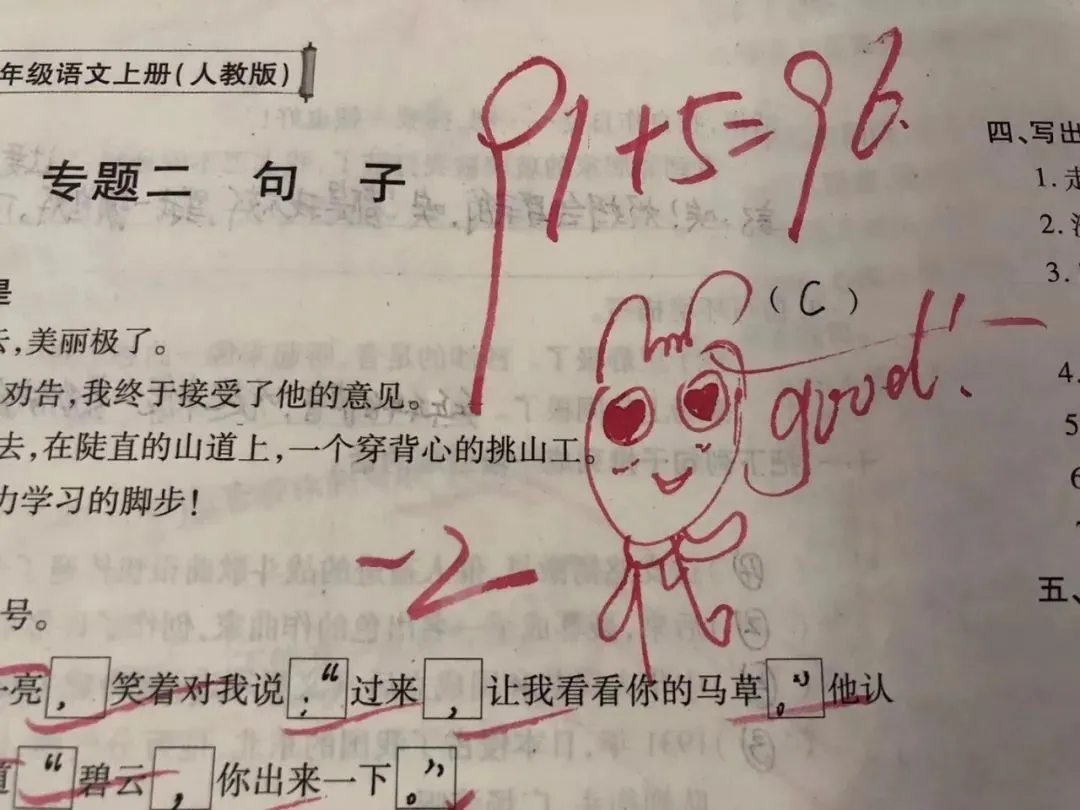 年级语文上册(人教版)
91+5=96.
专题二 句子
是
(C)
good!
,美丽极了。
劝告,我终于接受了他的意见。
去,在陡直的山道上,一个穿背心的挑山工。
力学习的脚步!
-2-
号。
亮,笑着对我说:“过来,让我看看你的马草。”他认
道“碧云,你出来一下。”
四、写出
1.走
2.
3.
4.
5
6
7
五、